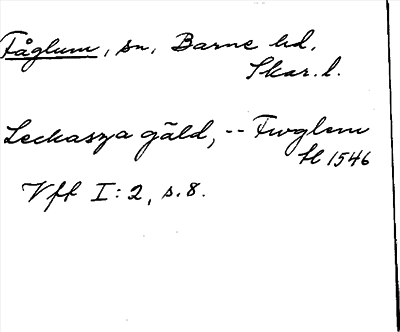 Fåglum, sn, Barne hd,
Skar. l.
Leckasza gäld, -- Fwglem
H 1546
Vff I:2, s.8.